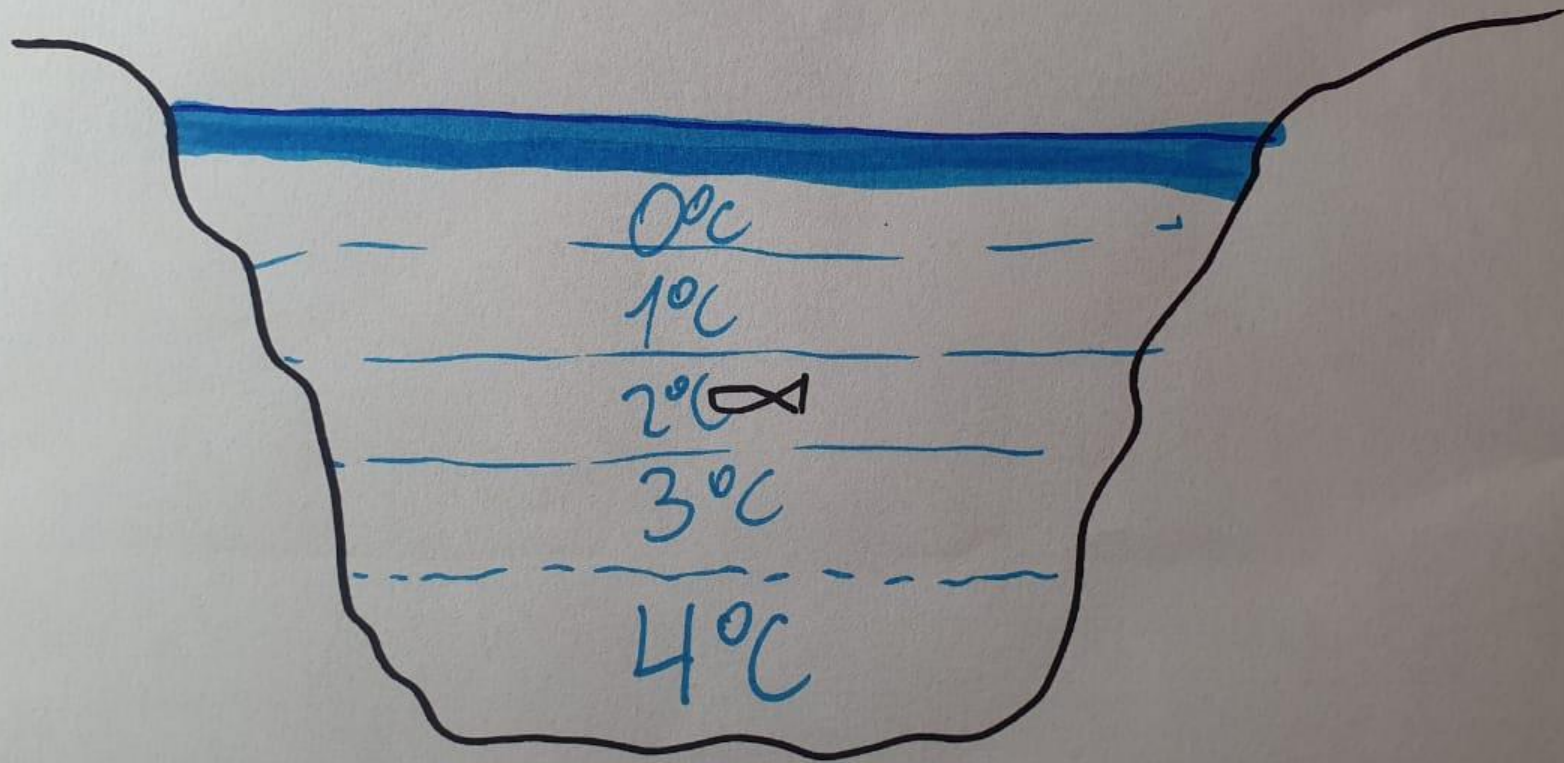 0°C
1°C
2°C
3°C
4°C